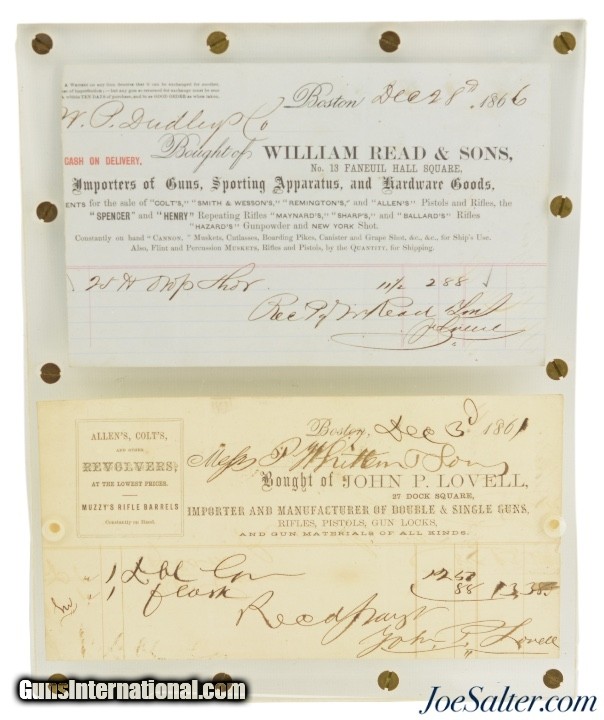 A WARRANT on any Gun denotes that it can be exchanged for another,
if not
within TEN DAYS of purchase, and in as GOOD ORDER as when taken.
Boston Dec 28th 1866
W. P. Dudley & Co
CASH ON DELIVERY,
Bought of WILLIAM READ & SONS,
No. 13 FANEUIL HALL SQUARE,
Importers of Guns, Sporting Apparatus, and Hardware Goods,
ENTS for the sale of "COLT'S," "SMITH & WESSON'S," "REMINGTON'S," and "ALLEN'S" Pistols and Rifles, the
"SPENCER" and "HENRY" Repeating Rifles "MAYNARD'S," "SHARP'S," and "BALLARD'S" Rifles
"HAZARD'S" Gunpowder and NEW YORK Shot.
Constantly on hand "CANNON," Muskets, Cutlasses, Boarding Pikes, Canister and Grape Shot, &c., &c., for Ship's Use.
Also, Flint and Percussion MUSKETS, Rifles and Pistols, by the QUANTITY, for Shipping.
25 # Drop Shot 11½ 2 88
Rec Py Wm Read & Sons
ALLEN'S, COLT'S,
AND OTHER
REVOLVERS,
AT THE LOWEST PRICES.
MUZZY'S RIFLE BARRELS
Constantly on Hand.
Boston, Dec 3d 1861
Mess P Whittem & Son
Bought of JOHN P. LOVELL,
27 DOCK SQUARE,
IMPORTER AND MANUFACTURER OF DOUBLE & SINGLE GUNS,
RIFLES, PISTOLS, GUN LOCKS,
AND GUN MATERIALS OF ALL KINDS.
1 Dbl Gun 12 50
1 flask 88 13.38
Recd Payt
John P. Lovell
GunsInternational.com
JoeSalter.com